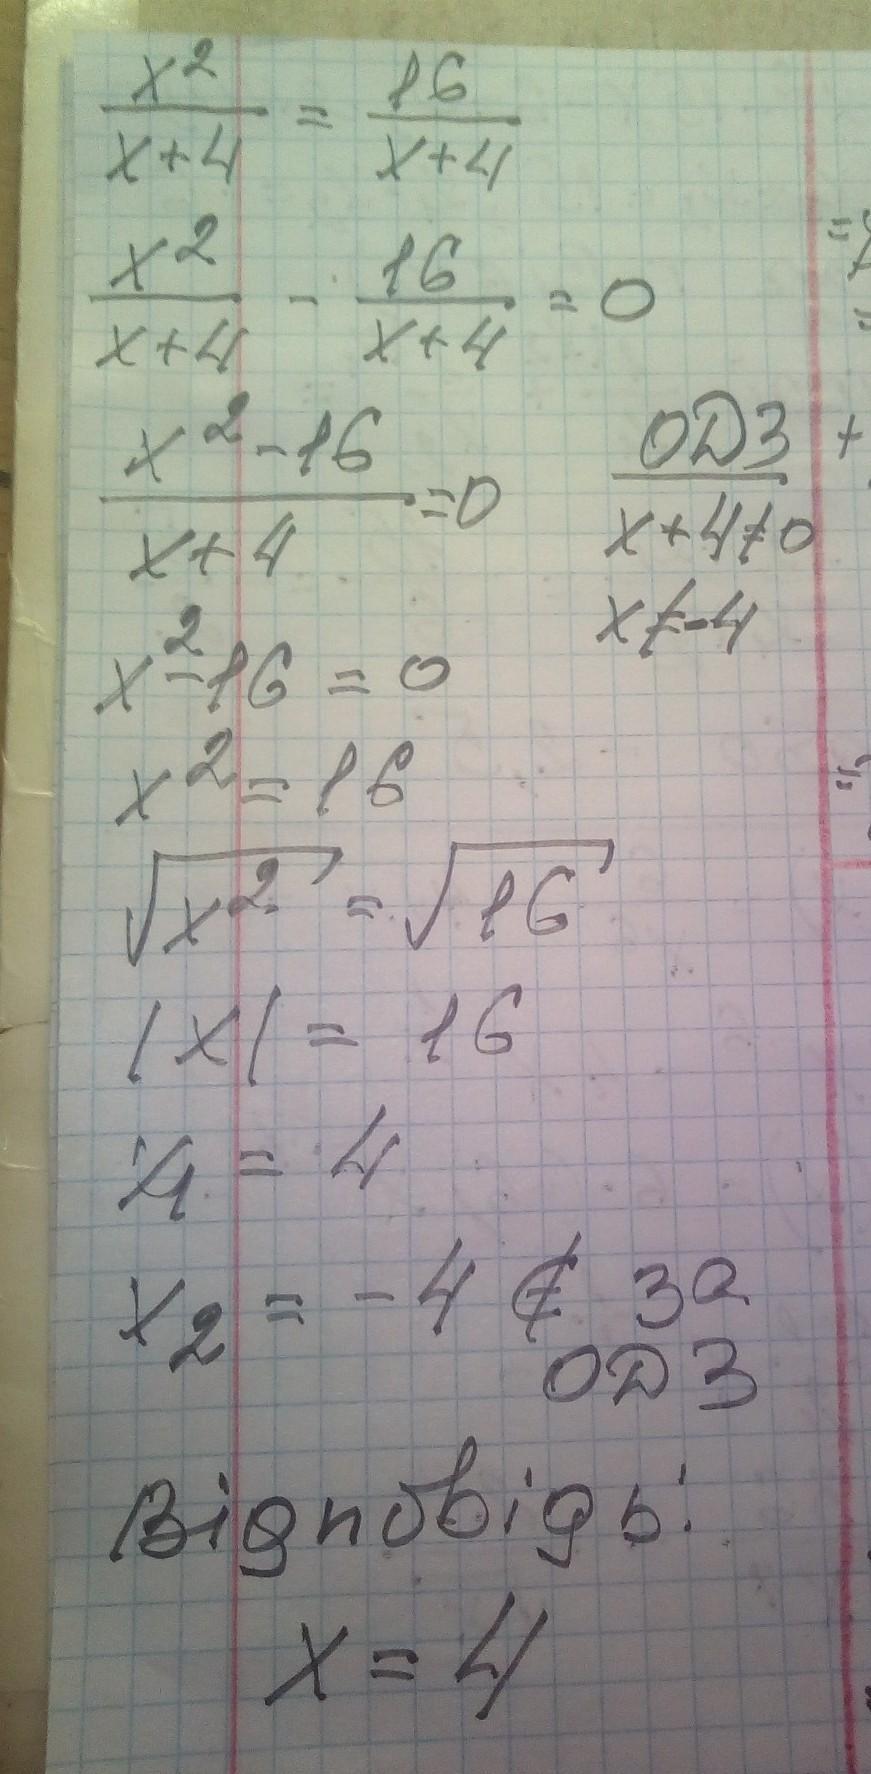 x²/(x+4) = 16/(x+4)
x²/(x+4) - 16/(x+4) = 0
(x²-16)/(x+4) = 0
ОДЗ
x+4≠0
x≠-4
x²-16 = 0
x² = 16
√x² = √16
|x| = 16
x₁ = 4
x₂ = -4 ∉ за
ОДЗ
Відповідь:
x = 4